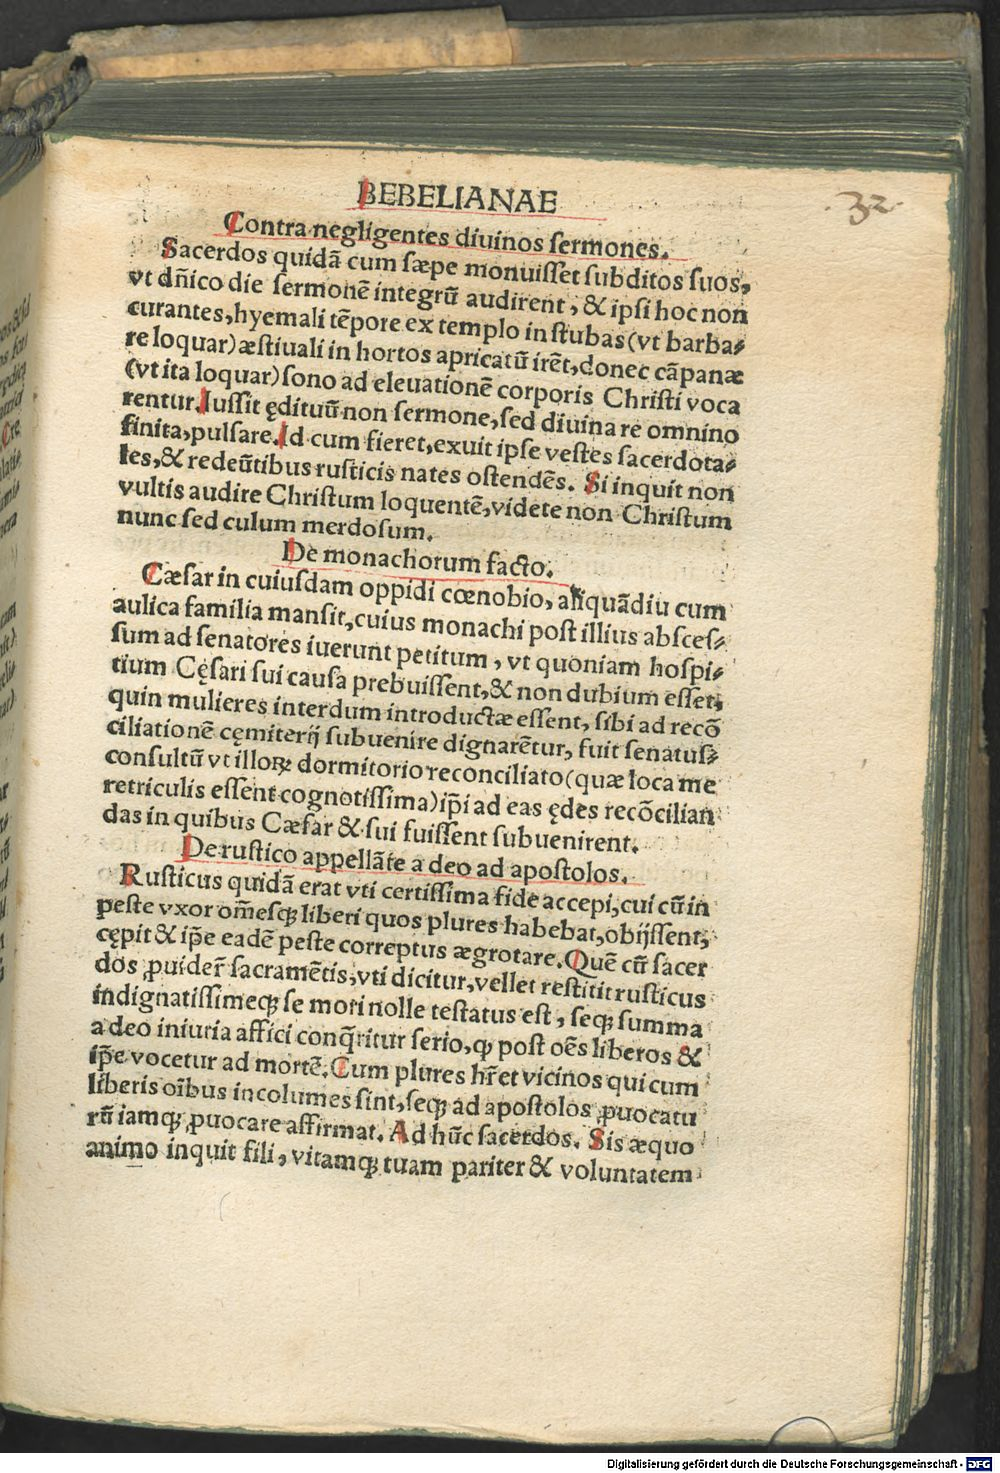 BEBELIANAE
32
Contra negligentes diuinos ſermones.
Sacerdos quidã cum ſæpe monuiſſet ſubditos ſuos,
vt dñico die ſermonẽ integrũ audirent, & ipſi hoc non
curantes, hyemali tẽpore ex templo in ſtubas (vt barba⸗
re loquar) æſtiuali in hortos apricatũ irẽt, donec cãpanæ
(vt ita loquar) ſono ad eleuationẽ corporis Chriſti voca
rentur. Iuſſit ędituũ non ſermone, ſed diuina re omnino
finita, pulſare. Id cum fieret, exuit ipſe veſtes ſacerdota⸗
les, & redeũtibus ruſticis nates oſtendẽs. Si inquit non
vultis audire Chriſtum loquentẽ, videte non Chriſtum
nunc ſed culum merdoſum.
De monachorum facto.
Cæſar in cuiuſdam oppidi cœnobio, aliquãdiu cum
aulica familia manſit, cuius monachi poſt illius abſceſ⸗
ſum ad ſenatores iuerunt petitum, vt quoniam hoſpi⸗
tium Cęſari ſui cauſa prebuiſſent, & non dubium eſſet,
quin mulieres interdum introductæ eſſent, ſibi ad recõ
ciliationẽ cęmiterij ſubuenire dignarẽtur, fuit ſenatuſ⸗
conſultũ vt illoꝝ dormitorio reconciliato (quæ loca me
retriculis eſſent cognotiſſima) ip̃i ad eas ędes recõcilian
das in quibus Cæſar & ſui fuiſſent ſubuenirent.
De ruſtico appellãte a deo ad apoſtolos.
Ruſticus quidã erat vti certiſſima fide accepi, cui cũ in
peſte vxor om̃eſqꝫ liberi quos plures habebat, obijſſent,
cępit & ip̃e eadẽ peſte correptus ægrotare. Quẽ cũ ſacer
dos ꝓuider̃ ſacramẽtis, vti dicitur, vellet reſtitit ruſticus
indignatiſſimeqꝫ ſe mori nolle teſtatus eſt, ſeqꝫ ſumma
a deo iniuria affici conq̃ritur ſerio, ꝙ poſt oẽs liberos &
ip̃e vocetur ad mortẽ. Cum plures hr̃et vicinos qui cum
liberis oĩbus incolumes ſint, ſeqꝫ ad apoſtolos ꝓuocatu
rũ iamqꝫ ꝓuocare affirmat. Ad hũc ſacerdos. Sis æquo
animo inquit fili, vitamqꝫ tuam pariter & voluntatem
Digitalisierung gefördert durch die Deutsche Forschungsgemeinschaft - DFG